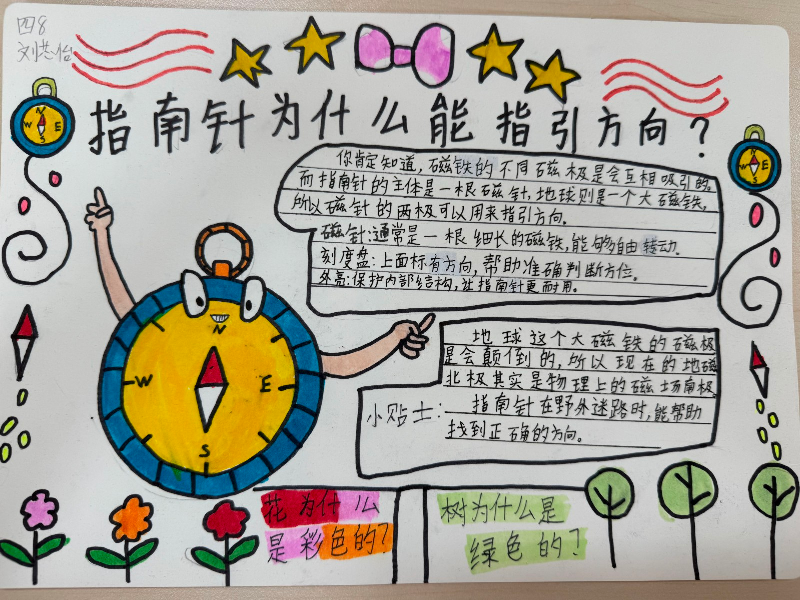 四8
刘芸怡
指南针为什么能指引方向？
N
W E
S
N
W E
S
你肯定知道，磁铁的不同磁极是会互相吸引的。
而指南针的主体是一根磁针，地球则是一个大磁铁，
所以磁针的两极可以用来指引方向。
磁针：通常是一根细长的磁铁，能够自由转动。
刻度盘：上面标有方向，帮助准确判断方位。
外壳：保护内部结构，让指南针更耐用。
N
W E
S
地球这个大磁铁的磁极
是会颠倒的，所以现在的地磁
北极其实是物理上的磁场南极。
小贴士：
指南针在野外迷路时，能帮助
找到正确的方向。
花为什么
是彩色的？
树为什么是
绿色的？